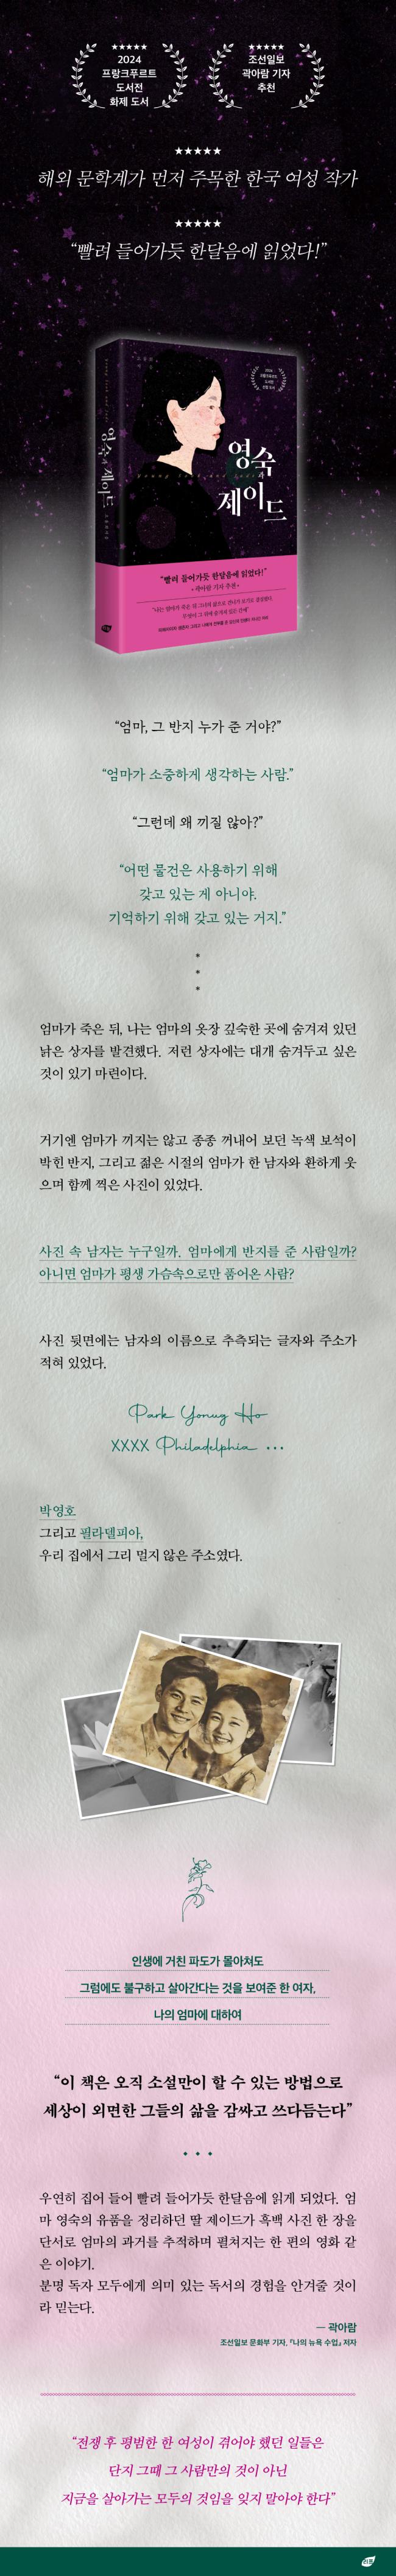 ★★★★★
2024
프랑크푸르트
도서전
화제 도서
★★★★★
조선일보
곽아람 기자
추천
★★★★★
해외 문학계가 먼저 주목한 한국 여성 작가
★★★★★
“빨려 들어가듯 한달음에 읽었다!”
영숙과 제이드
영숙
과
제이드
“빨려 들어가듯 한달음에 읽었다!”
• 곽아람 기자 추천 •
“엄마, 그 반지 누가 준 거야?”
“엄마가 소중하게 생각하는 사람.”
“그런데 왜 끼질 않아?”
“어떤 물건은 사용하기 위해
갖고 있는 게 아니야.
기억하기 위해 갖고 있는 거지.”
*
*
*
엄마가 죽은 뒤, 나는 엄마의 옷장 깊숙한 곳에 숨겨져 있던
낡은 상자를 발견했다. 저런 상자에는 대개 숨겨두고 싶은
것이 있기 마련이다.
거기엔 엄마가 끼지는 않고 종종 꺼내어 보던 녹색 보석이
박힌 반지, 그리고 젊은 시절의 엄마가 한 남자와 환하게 웃
으며 함께 찍은 사진이 있었다.
사진 속 남자는 누구일까. 엄마에게 반지를 준 사람일까?
아니면 엄마가 평생 가슴속으로만 품어온 사람?
사진 뒷면에는 남자의 이름으로 추측되는 글자와 주소가
적혀 있었다.
Park Yonug Ho
XXXX Philadelphia ...
박영호
그리고 필라델피아,
우리 집에서 그리 멀지 않은 주소였다.
인생에 거친 파도가 몰아쳐도
그럼에도 불구하고 살아간다는 것을 보여준 한 여자,
나의 엄마에 대하여
“이 책은 오직 소설만이 할 수 있는 방법으로
세상이 외면한 그들의 삶을 감싸고 쓰다듬는다”
• • •
우연히 집어 들어 빨려 들어가듯 한달음에 읽게 되었다. 엄
마 영숙의 유품을 정리하던 딸 제이드가 흑백 사진 한 장을
단서로 엄마의 과거를 추적하며 펼쳐지는 한 편의 영화 같
은 이야기.
분명 독자 모두에게 의미 있는 독서의 경험을 안겨줄 것이
라 믿는다.
— 곽아람
조선일보 문화부 기자, 『나의 뉴욕 수업』 저자
“전쟁 후 평범한 한 여성이 겪어야 했던 일들은
단지 그때 그 사람만의 것이 아닌
지금을 살아가는 모두의 것임을 잊지 말아야 한다”